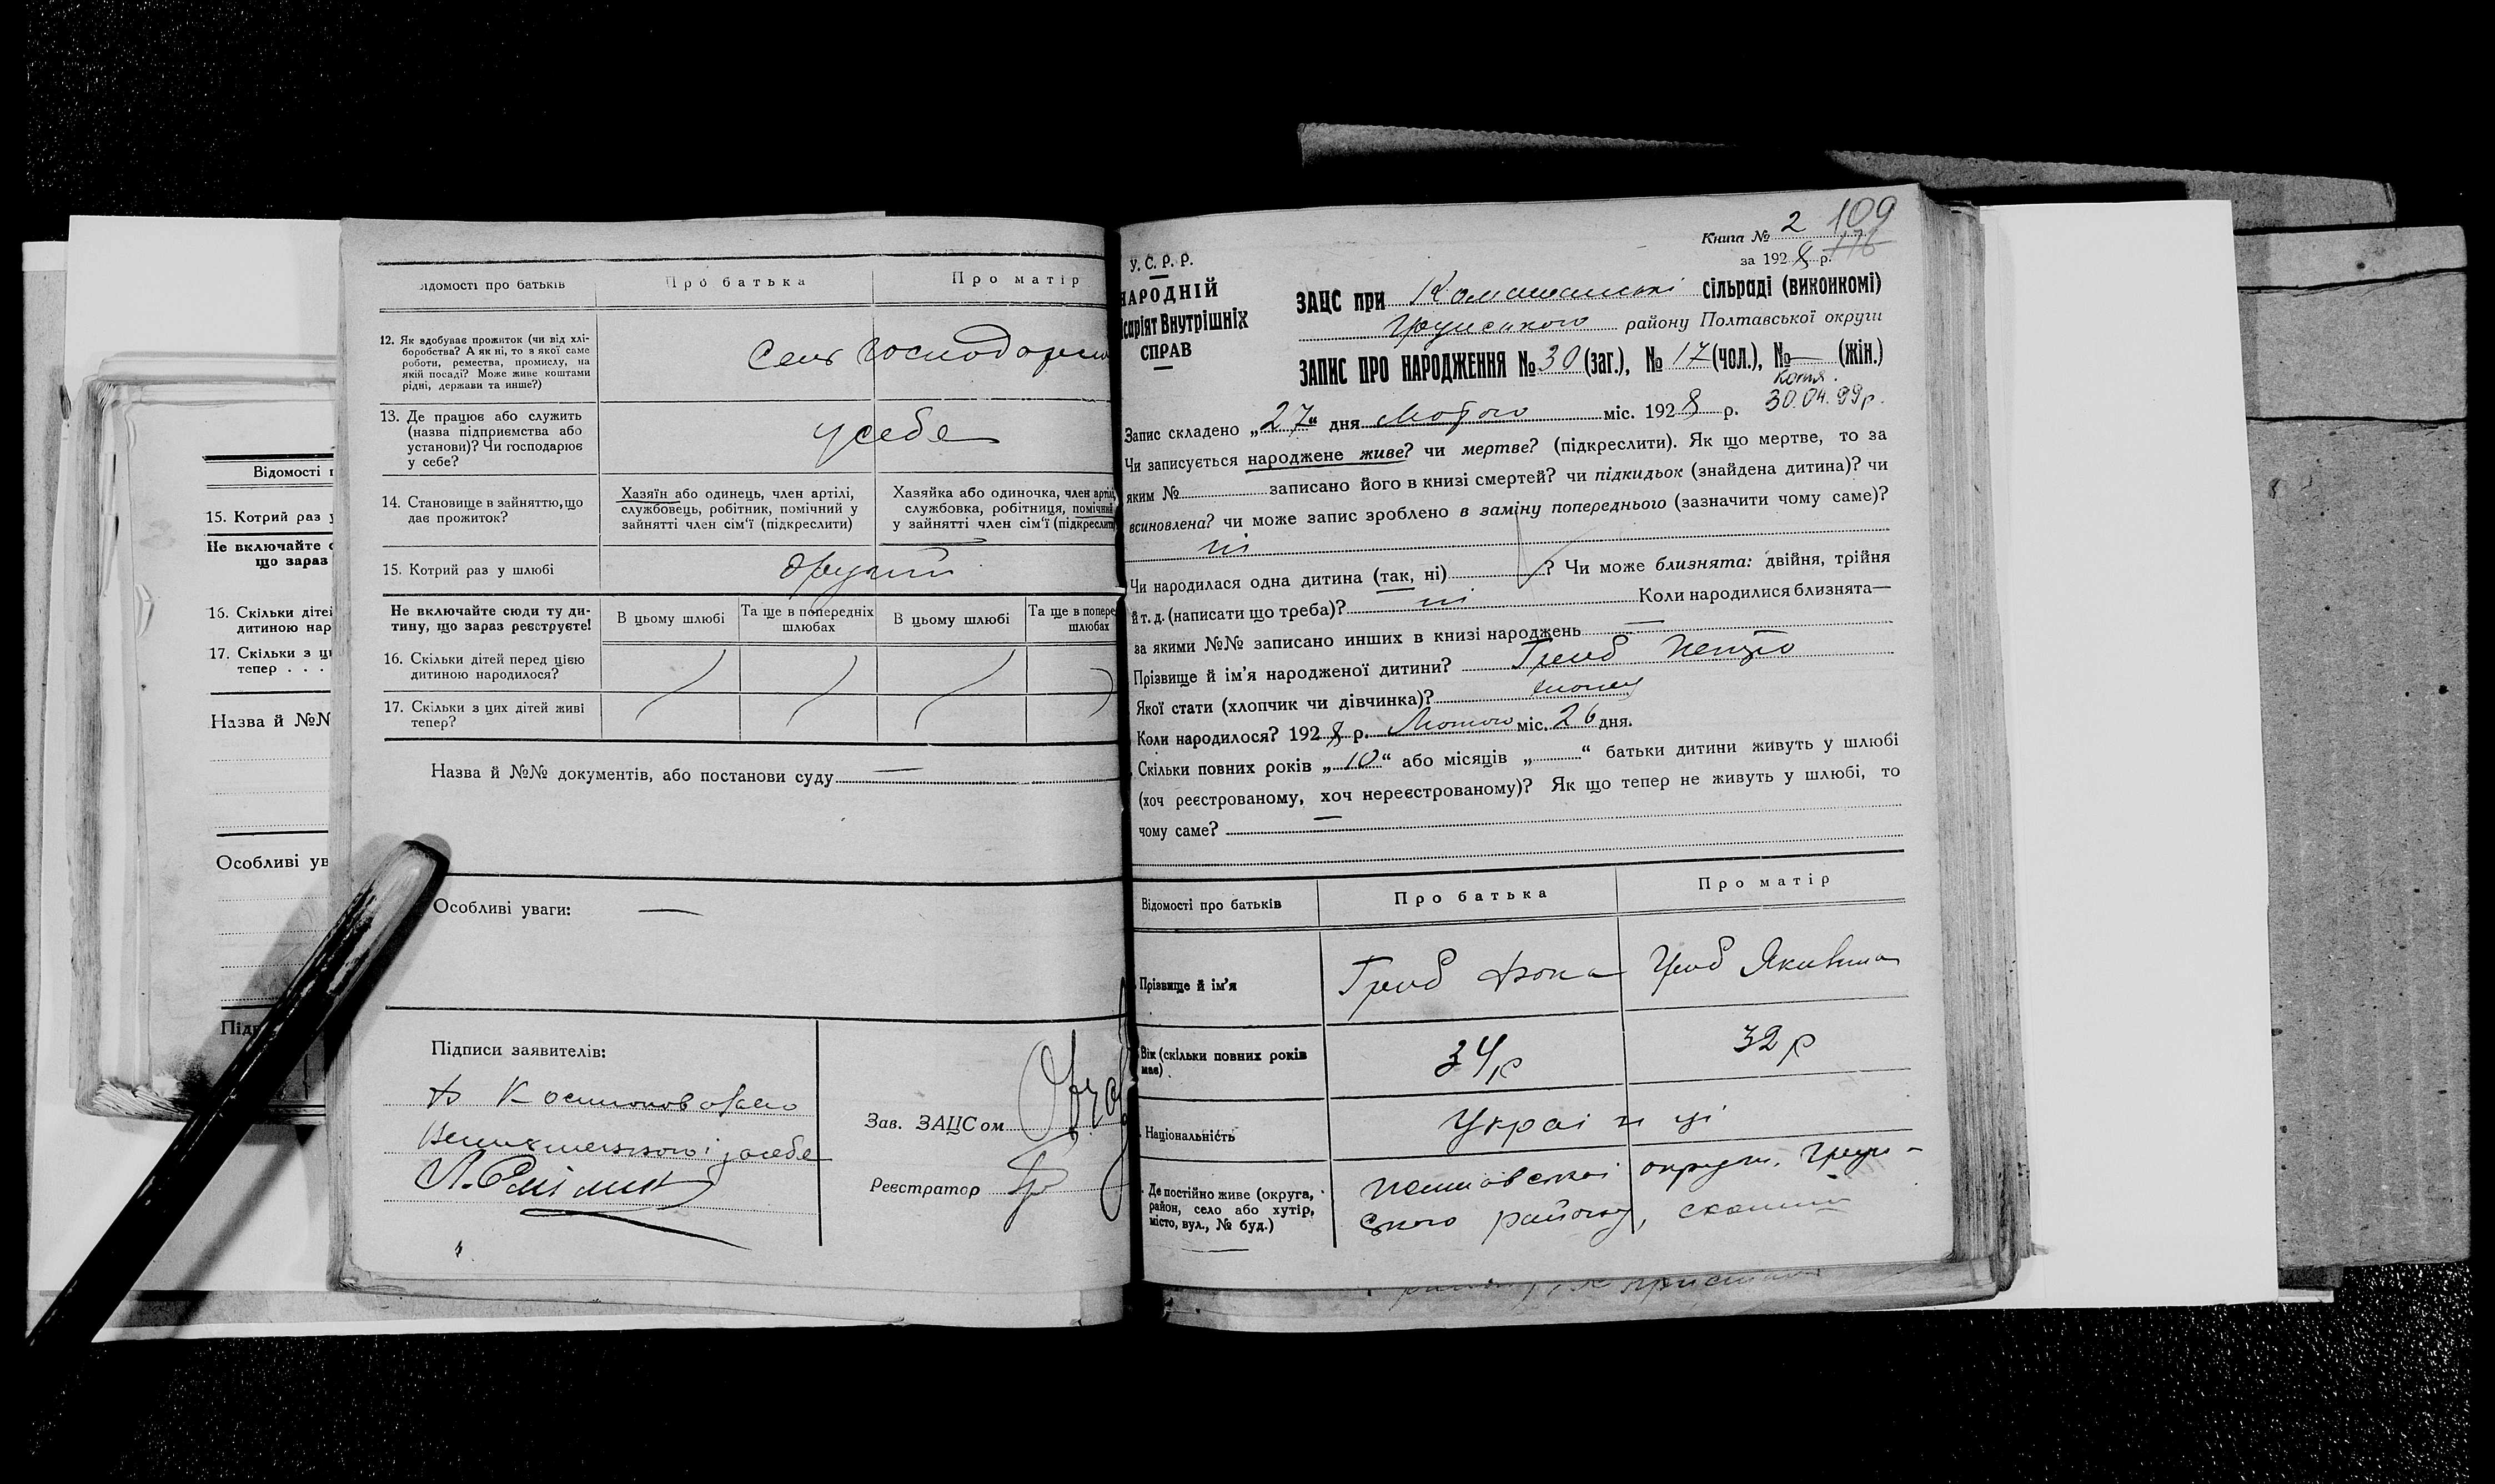 Відомості п
15. Котрий раз у
Не включайте с
що зараз
16. Скільки діте
дитиною нар
17. Скільки з ц
тепер . . .
Назва й №№
Особливі ув
Підп
ідомості про батьків
Про батька
Про матір
12. Як здобуває прожиток (чи від хлі-
боробства? А як ні, то з якої саме
роботи, ремества, промислу, на
якій посаді? Може живе коштами
рідні, держави та инше?)
13. Де працює або служить
(назва підприємства або
установи)? Чи господарює
у себе?
у себе
14. Становище в зайняттю, що
дає прожиток?
Хазяїн або одинець, член артілі,
службовець, робітник, помічний у
зайнятті член сім'ї (підкреслити)
Хазяйка або одиночка, член артілі,
службовка, робітниця, помічний
у зайнятті член сім'ї (підкреслити
15. Котрий раз у шлюбі
другий
Не включайте сюди ту ди-
тину, що зараз реєструєте!
В цьому шлюбі
Та ще в попередніх
шлюбах
В цьому шлюбі
Та ще в попере
шлюбах
16. Скільки дітей перед цією
дитиною народилося?
17. Скільки з цих дітей живі
тепер?
Назва й №№ документів, або постанови суду —
Особливі уваги: —
Підписи заявителів:
Зав. ЗАЦСом
Реєстратор
Книга № 2 109
за 1928 р. 116
У. С. Р. Р.
НАРОДНІЙ
ісаріят Внутрішніх
СПРАВ
ЗАЦС при сільраді (виконкомі)
району Полтавської округи
ЗАПИС ПРО НАРОДЖЕННЯ № 30 (заг.), № 17 (чол.), № — (жін.)
копія.
30.04.99р.
Запис складено „27" дня Лютого міс. 1928 р.
Чи записується народжене живе? чи мертве? (підкреслити). Як що мертве, то за
яким № записано його в книзі смертей? чи підкидьок (знайдена дитина)? чи
всиновлена? чи може запис зроблено в заміну попереднього (зазначити чому саме)?
ні
Чи народилася одна дитина (так, ні) ? Чи може близнята: двійня, трійня
й т. д. (написати що треба)? ні Коли народилися близнята—
за якими №№ записано инших в книзі народжень —
Прізвище й ім'я народженої дитини? Гриб Петро
Якої стати (хлопчик чи дівчинка)?
Коли народилося? 1928 р. Лютого міс. 26 дня.
Скільки повних років „10" або місяців „ " батьки дитини живуть у шлюбі
(хоч реєстрованому, хоч нереєстрованому)? Як що тепер не живуть у шлюбі, то
чому саме?
Відомості про батьків
Про батька
Про матір
Прізвище й ім'я
Гриб
Гриб
Вік (скільки повних років
має)
34 р
32 р
Національність
Українці
Де постійно живе (округа,
район, село або хутір,
місто, вул., № буд.)
округи,
району,